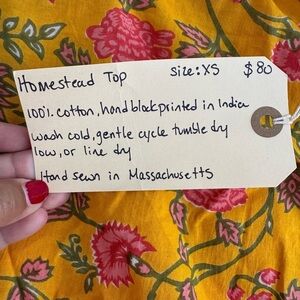 Homestead Top Size: XS $80
100% cotton, hand block printed in India
wash cold, gentle cycle tumble dry
low, or line dry
Hand sewn in Massachusetts